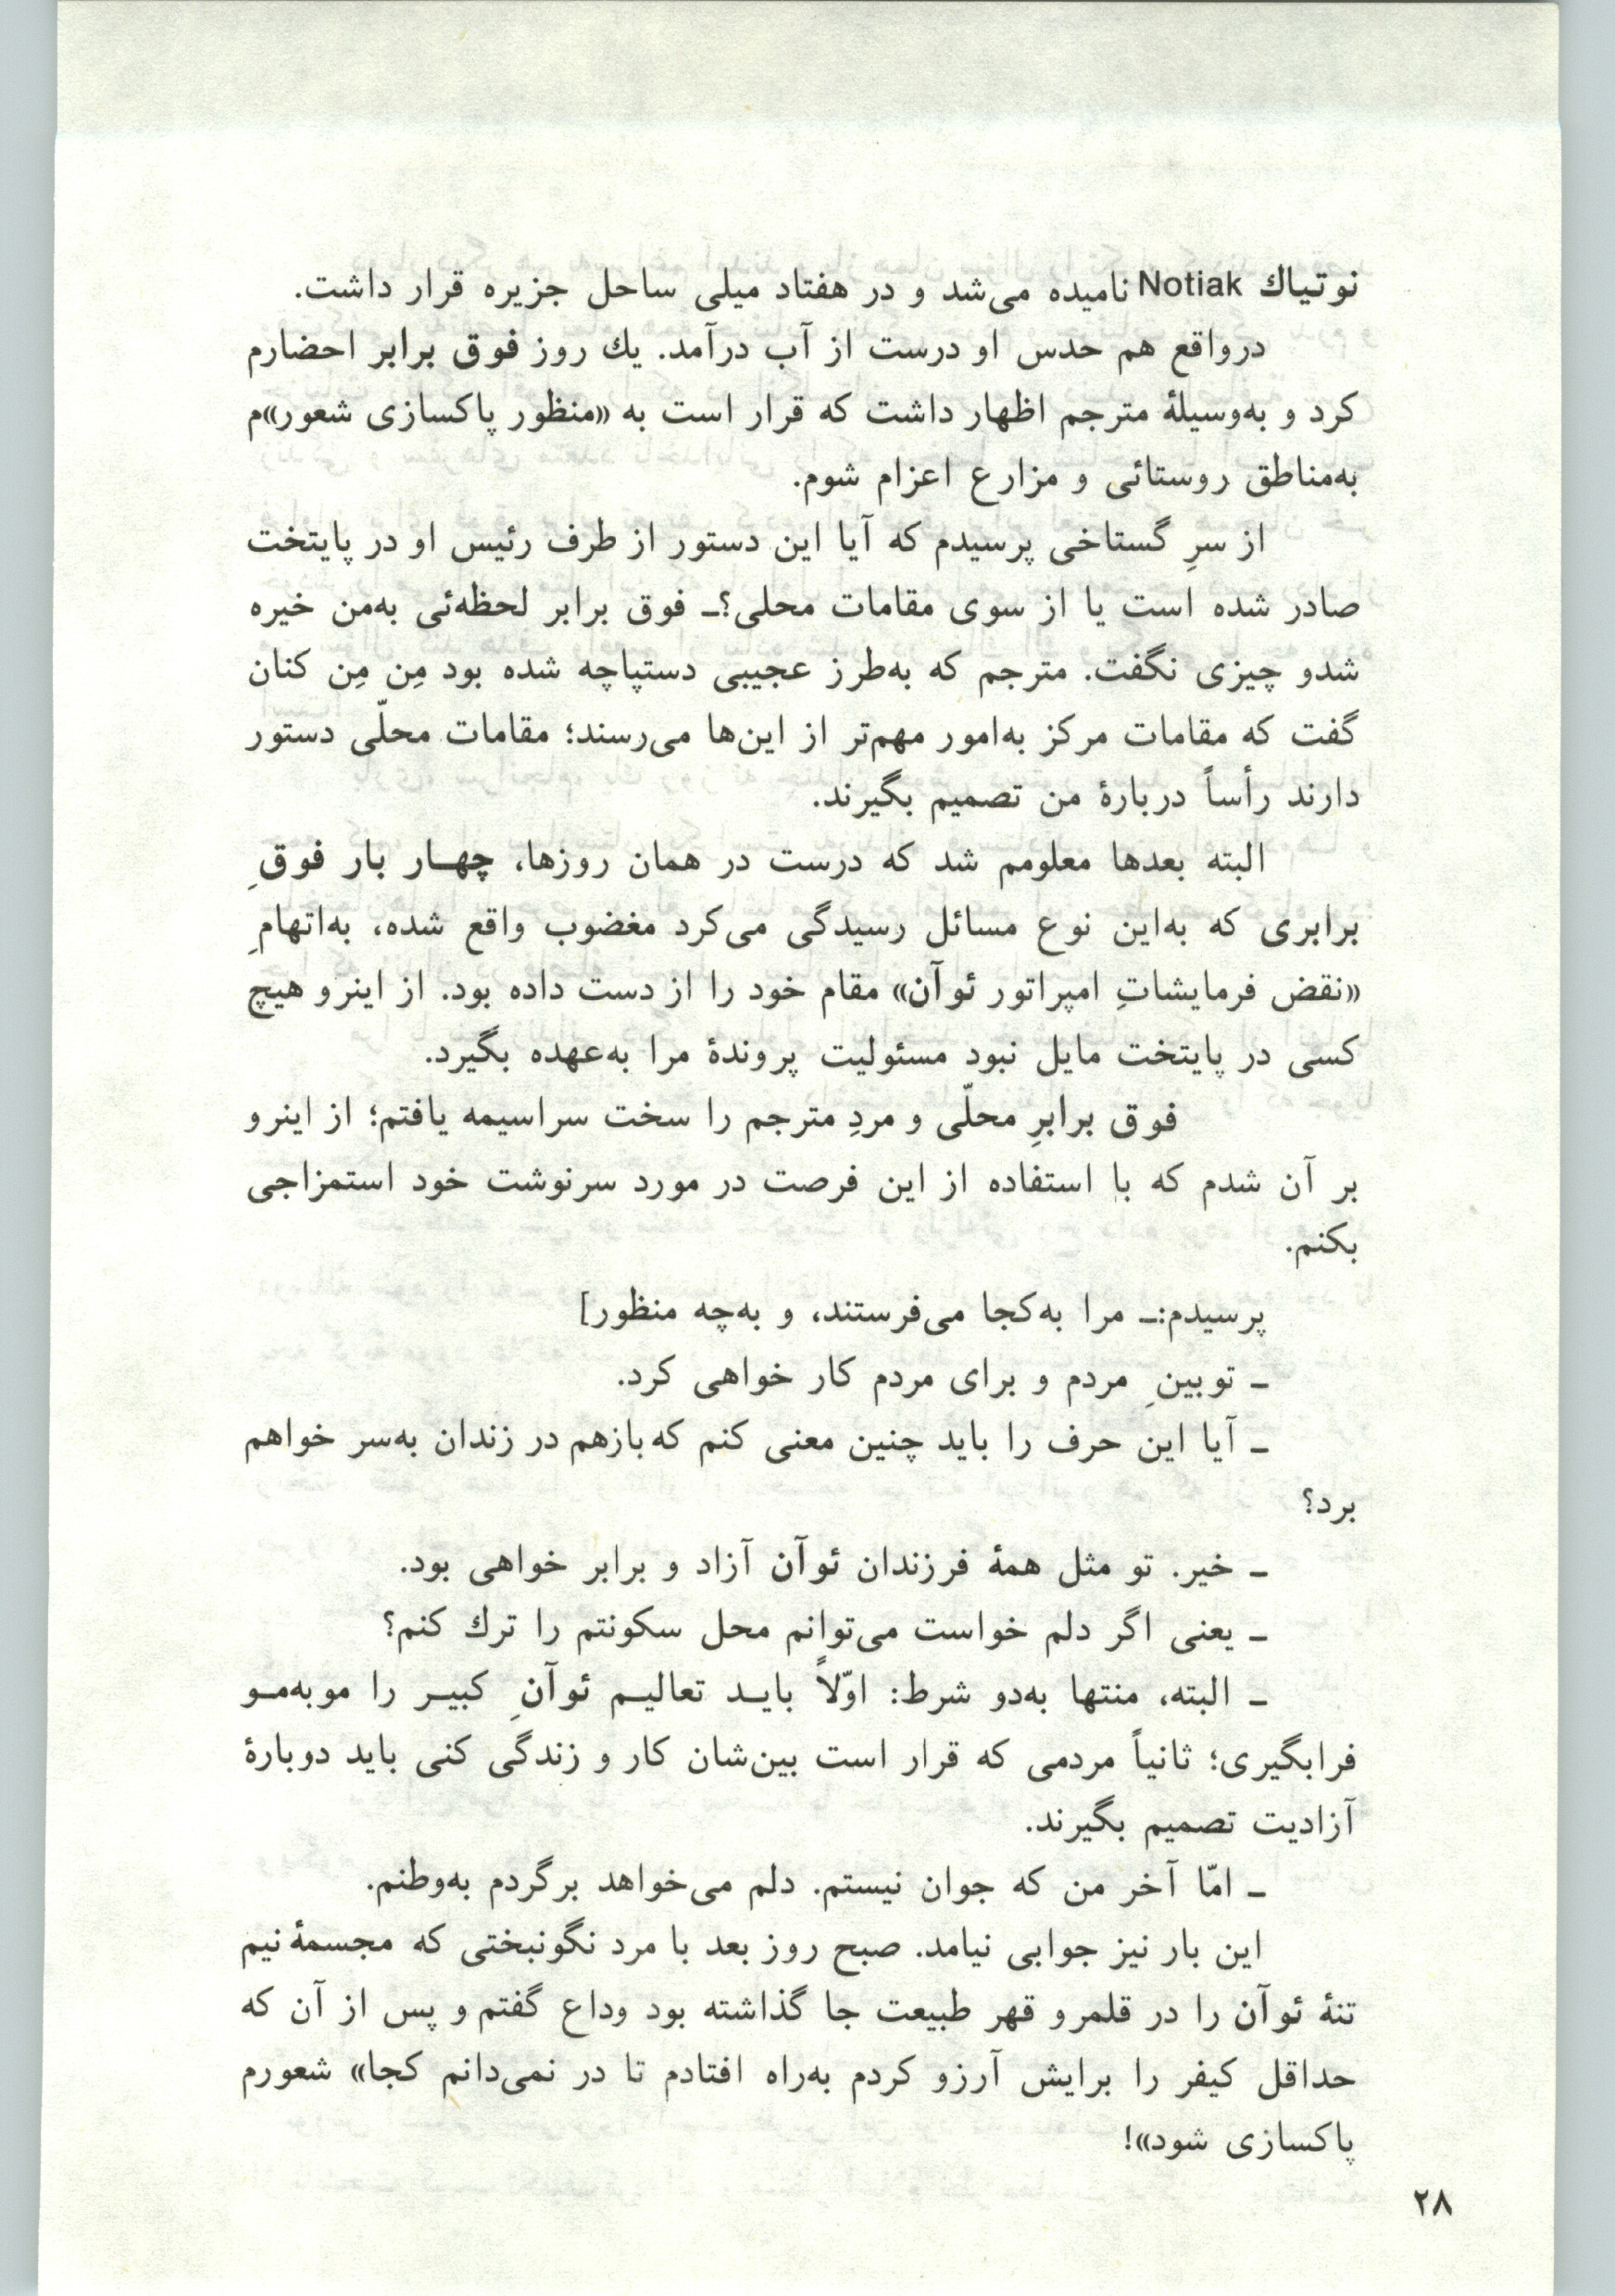 نوتیاك Notiak نامیده می‌شد و در هفتاد میلی ساحل جزیره قرار داشت.
درواقع هم حدس او درست از آب درآمد. یك روز فوق برابر احضارم
کرد و به‌وسیلهٔ مترجم اظهار داشت که قرار است به «منظور پاکسازی شعور»م
به‌مناطق روستائی و مزارع اعزام شوم.
از سرِ گستاخی پرسیدم که آیا این دستور از طرف رئیس او در پایتخت
صادر شده است یا از سوی مقامات محلی؟ـ فوق برابر لحظه‌ئی به‌من خیره
شدو چیزی نگفت. مترجم که به‌طرز عجیبی دستپاچه شده بود مِن مِن کنان
گفت که مقامات مرکز به‌امور مهم‌تر از این‌ها می‌رسند؛ مقامات محلّی دستور
دارند رأساً دربارهٔ من تصمیم بگیرند.
البته بعدها معلومم شد که درست در همان روزها، چهـار بار فوقِ
برابری که به‌این نوع مسائل رسیدگی می‌کرد مغضوب واقع شده، به‌اتهامِ
«نقض فرمایشاتِ امپراتور ئوآن» مقام خود را از دست داده بود. از اینرو هیچ
کسی در پایتخت مایل نبود مسئولیت پروندهٔ مرا به‌عهده بگیرد.
فوق برابرِ محلّی و مردِ مترجم را سخت سراسیمه یافتم؛ از اینرو
بر آن شدم که با استفاده از این فرصت در مورد سرنوشت خود استمزاجی
بکنم.
پرسیدم:ـ مرا به‌کجا می‌فرستند، و به‌چه منظور]
ـ توبینِ مردم و برای مردم کار خواهی کرد.
ـ آیا این حرف را باید چنین معنی کنم که بازهم در زندان به‌سر خواهم
برد؟
ـ خیر. تو مثل همهٔ فرزندان ئوآن آزاد و برابر خواهی بود.
ـ یعنی اگر دلم خواست می‌توانم محل سکونتم را ترك کنم؟
ـ البته، منتها به‌دو شرط: اوّلاً بایـد تعالیـم ئوآنِ کبیـر را موبه‌مـو
فرابگیری؛ ثانیاً مردمی که قرار است بین‌شان کار و زندگی کنی باید دوبارهٔ
آزادیت تصمیم بگیرند.
ـ امّا آخر من که جوان نیستم. دلم می‌خواهد برگردم به‌وطنم.
این بار نیز جوابی نیامد. صبح روز بعد با مرد نگونبختی که مجسمهٔ نیم
تنهٔ ئوآن را در قلمرو قهر طبیعت جا گذاشته بود وداع گفتم و پس از آن که
حداقل کیفر را برایش آرزو کردم به‌راه افتادم تا در نمی‌دانم کجا» شعورم
پاکسازی شود»!
۲۸